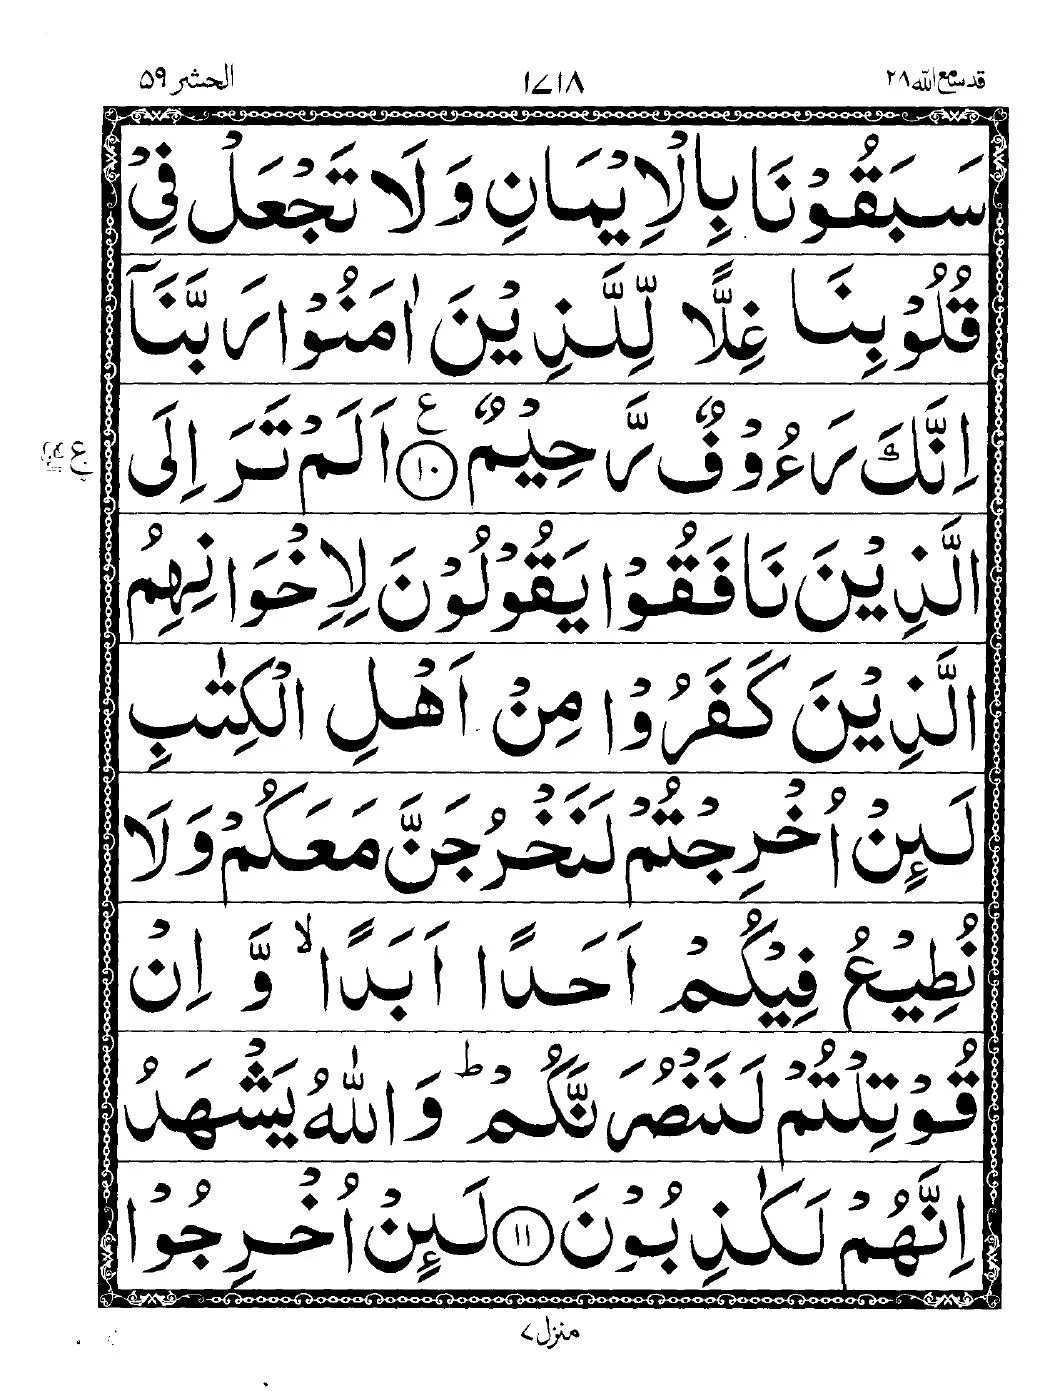 قد سمع الله ٢٨ ١٧١٨ الحشر ٥٩
سَبَقُوْنَا بِالْاِيْمَانِ وَلَا تَجْعَلْ فِيْ
قُلُوْبِنَا غِلًّا لِّلَّذِيْنَ اٰمَنُوْا رَبَّنَاۤ
اِنَّكَ رَءُوْفٌ رَّحِيْمٌ ﴿١٠﴾ ع اَلَمْ تَرَ اِلَى
الَّذِيْنَ نَافَقُوْا يَقُوْلُوْنَ لِاِخْوَانِهِمُ
الَّذِيْنَ كَفَرُوْا مِنْ اَهْلِ الْكِتٰبِ
لَىِٕنْ اُخْرِجْتُمْ لَنَخْرُجَنَّ مَعَكُمْ وَلَا
نُطِيْعُ فِيْكُمْ اَحَدًا اَبَدًا ۙ وَّ اِنْ
قُوْتِلْتُمْ لَنَنْصُرَنَّكُمْ ؕ وَاللّٰهُ يَشْهَدُ
اِنَّهُمْ لَكٰذِبُوْنَ ﴿١١﴾ لَىِٕنْ اُخْرِجُوْا
منزل ٧